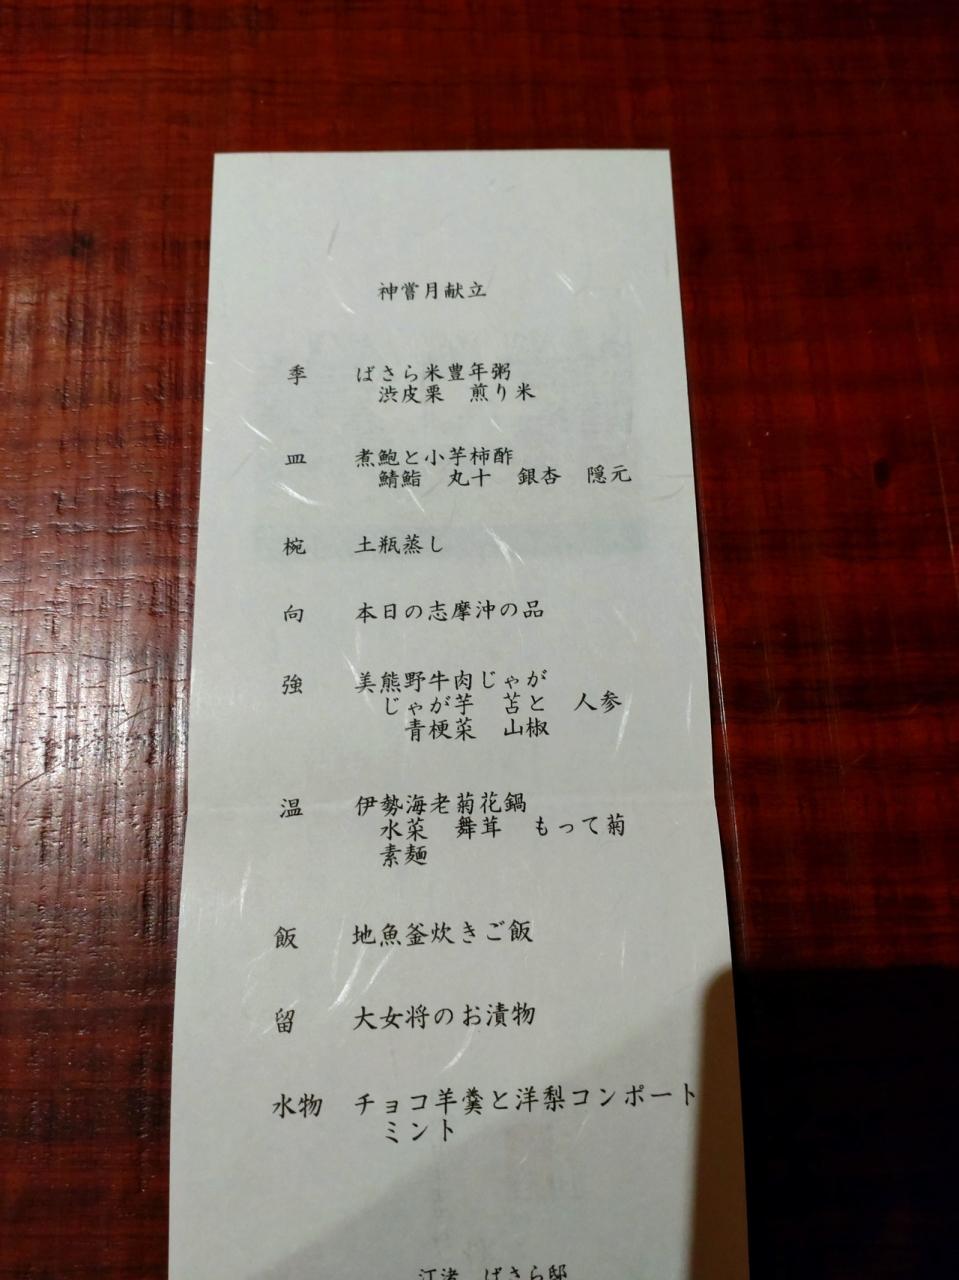 神嘗月献立
季 ばさら米豊年粥
渋皮栗 煎り米
皿 煮鮑と小芋柿酢
鯖鮨 丸十 銀杏 隠元
椀 土瓶蒸し
向 本日の志摩沖の品
強 美熊野牛肉じゃが
じゃが芋 苫と 人参
青梗菜 山椒
温 伊勢海老菊花鍋
水菜 舞茸 もって菊
素麺
飯 地魚釜炊きご飯
留 大女将のお漬物
水物 チョコ羊羹と洋梨コンポート
ミント
江渚 ばさら邸